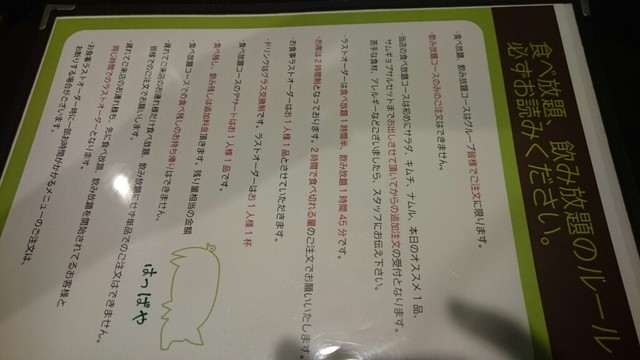 食べ放題、飲み放題のルール
必ずお読みください。
・食べ放題、飲み放題コースはグループ皆様でご注文に限ります。
・飲み放題コースのみのご注文はできません。
・当店の食べ放題コースは初めにサラダ、キムチ、ナムル、本日のオススメ1品、
サムギョプサルセットまでお出しさせて頂いてからの追加注文の受付となります。
苦手な食材、アレルギーなどございましたら、スタッフにお伝え下さい。
・ラストオーダーは食べ放題1時間半、飲み放題1時間45分です。
・お席は2時間制となっております。2時間で食べ切れる量のご注文でお願いいたします。
・お食事ラストオーダーはお1人様1品とさせていただきます。
・ドリンクはグラス交換制です。ラストオーダーはお1人様1杯
・食べ放題コースのデザートはお1人様1品です。
・食べ残し、飲み残しは追加料金頂きます。残り量相当の金額
・食べ放題コースでの食べ残しのお持ち帰りはできません。
・遅れてご来店のお連れ様だけ食べ放題、飲み放題にせず単品でのご注文はできません。
皆様でのご注文でお願いします。
・遅れてご来店のお連れ様も、先に食べ放題、飲み放題を開始されてるお客様と
同じ時間でのラストオーダーとなります。
・お食事ラストオーダー時に一部お時間がかかるメニューのご注文は、
お断りする場合がございます。
はっぱや